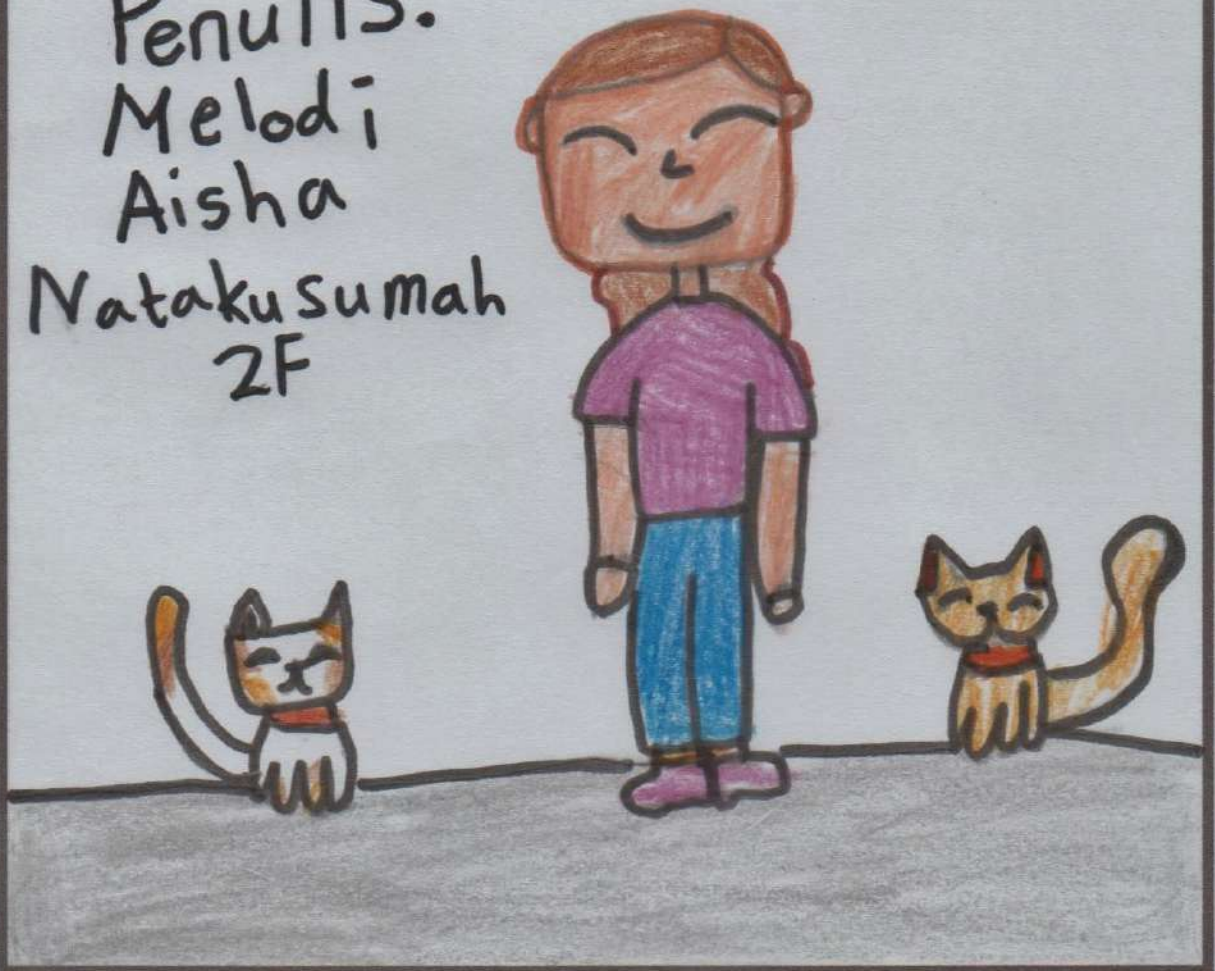 Penulis.
Melodi
Aisha
Natakusumah
2F